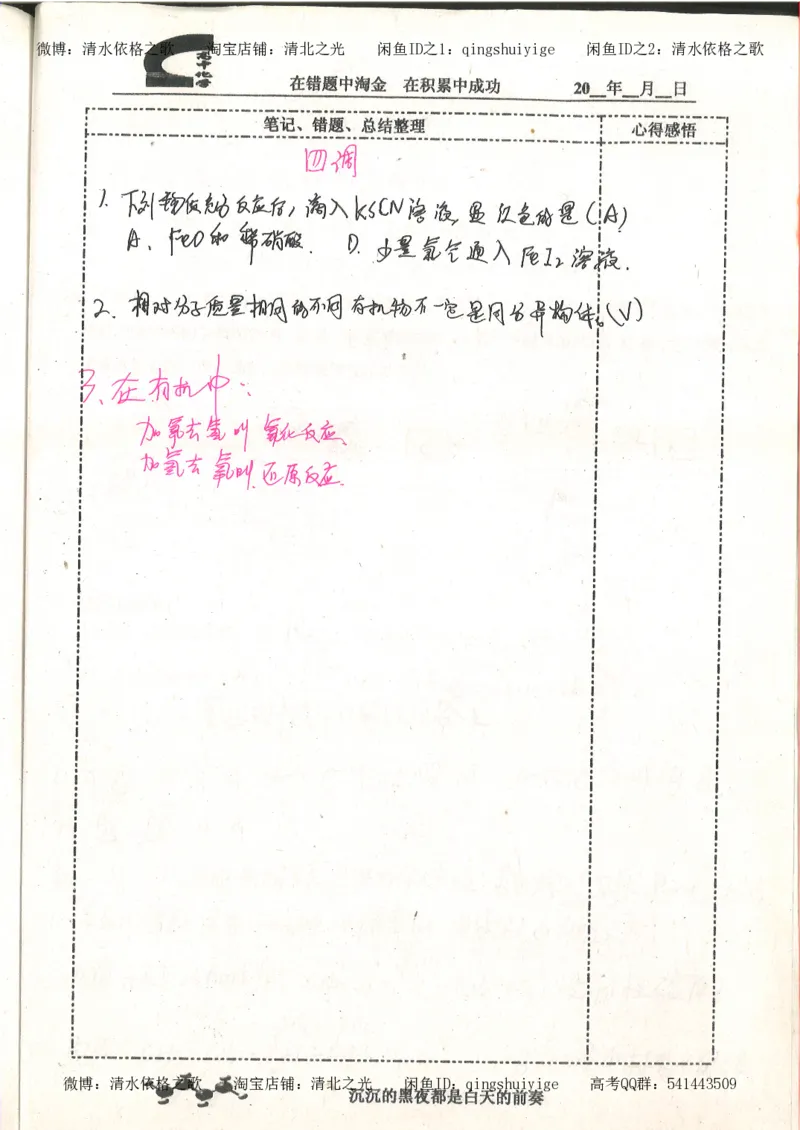 微博：清水依格之歌 淘宝店铺：清北之光 闲鱼ID之1：qingshuiyige 闲鱼ID之2：清水依格之歌
高中化学
在错题中淘金 在积累中成功 20__年__月__日
笔记、错题、总结整理 心得感悟
四调
1. 下列物质充分反应后，滴入KSCN溶液，显红色的是（A）
A、FeO和稀硝酸. D. 少量氯气通入FeI2溶液.
2. 相对分子质量相同的不同有机物不一定是同分异构体。(√)
3、在有机中：
加氧去氢叫氧化反应、
加氢去氧叫还原反应.
微博：清水依格之歌 淘宝店铺：清北之光 闲鱼ID：qingshuiyige 高考QQ群：541443509
沉沉的黑夜都是白天的前奏